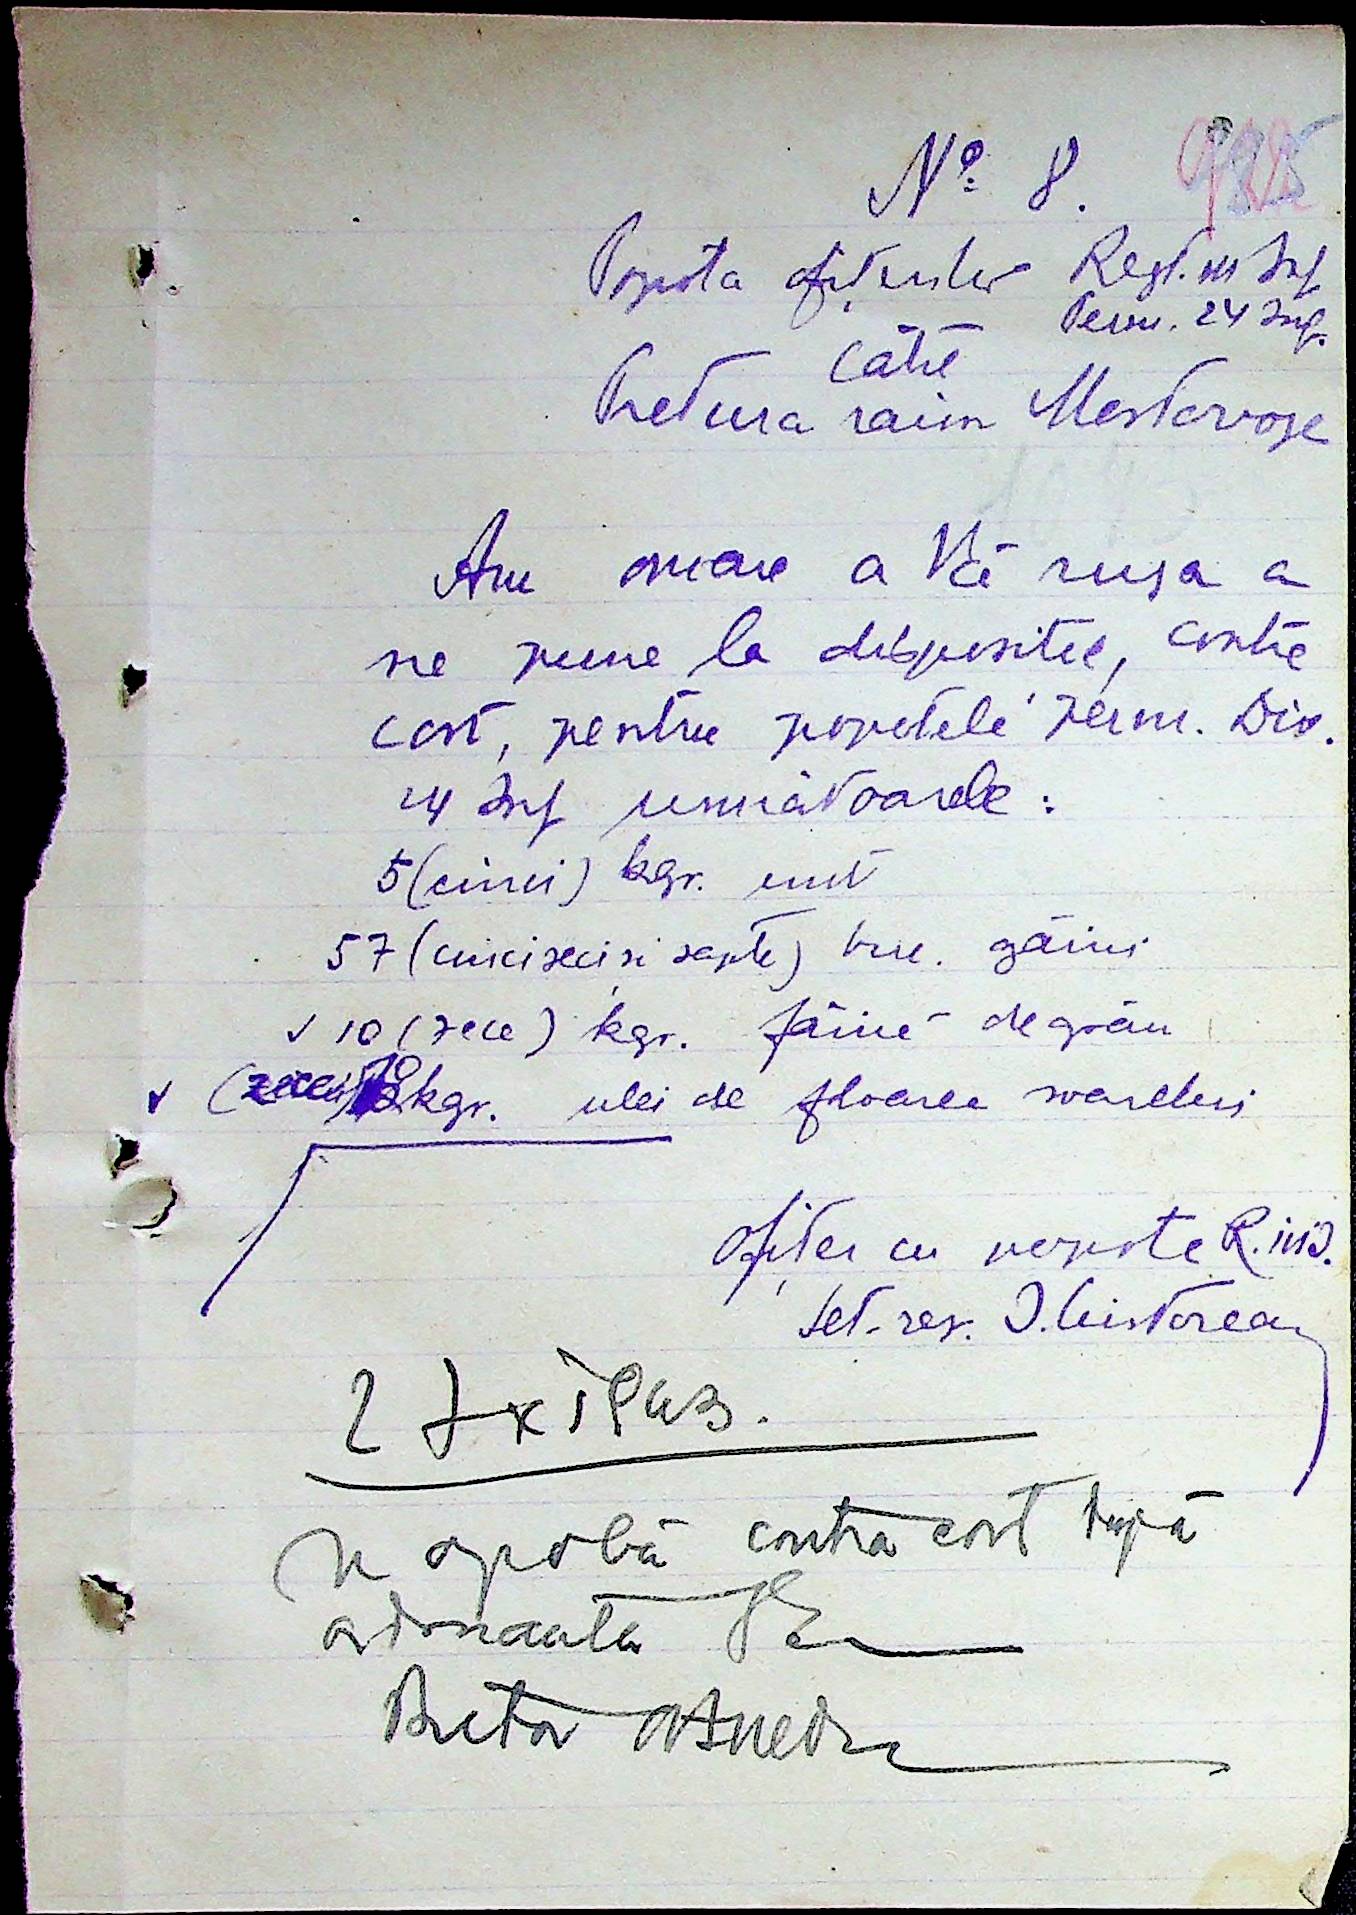 Nº 8.
Popota ofițerilor Regt. 111 Inf
Perm. 24 Inf.
Către
Pretura raion Mostovoye
Am onoare a Vă ruga a
ne pune la dispozitie, contra
cost, pentru popotele perm. Div.
24 Inf următoarele:
5 (cinci) kgr. unt
57 (cincizeci și șapte) buc. găini
✓ 10 (zece) kgr. făină de grâu
✓ kgr. ulei de floarea soarelui
Ofițer cu popota R. 111 I.
Slt. rez. I. Cristorean
2 I XI
Se aprobă contra cost după
ordonanta
Pretor